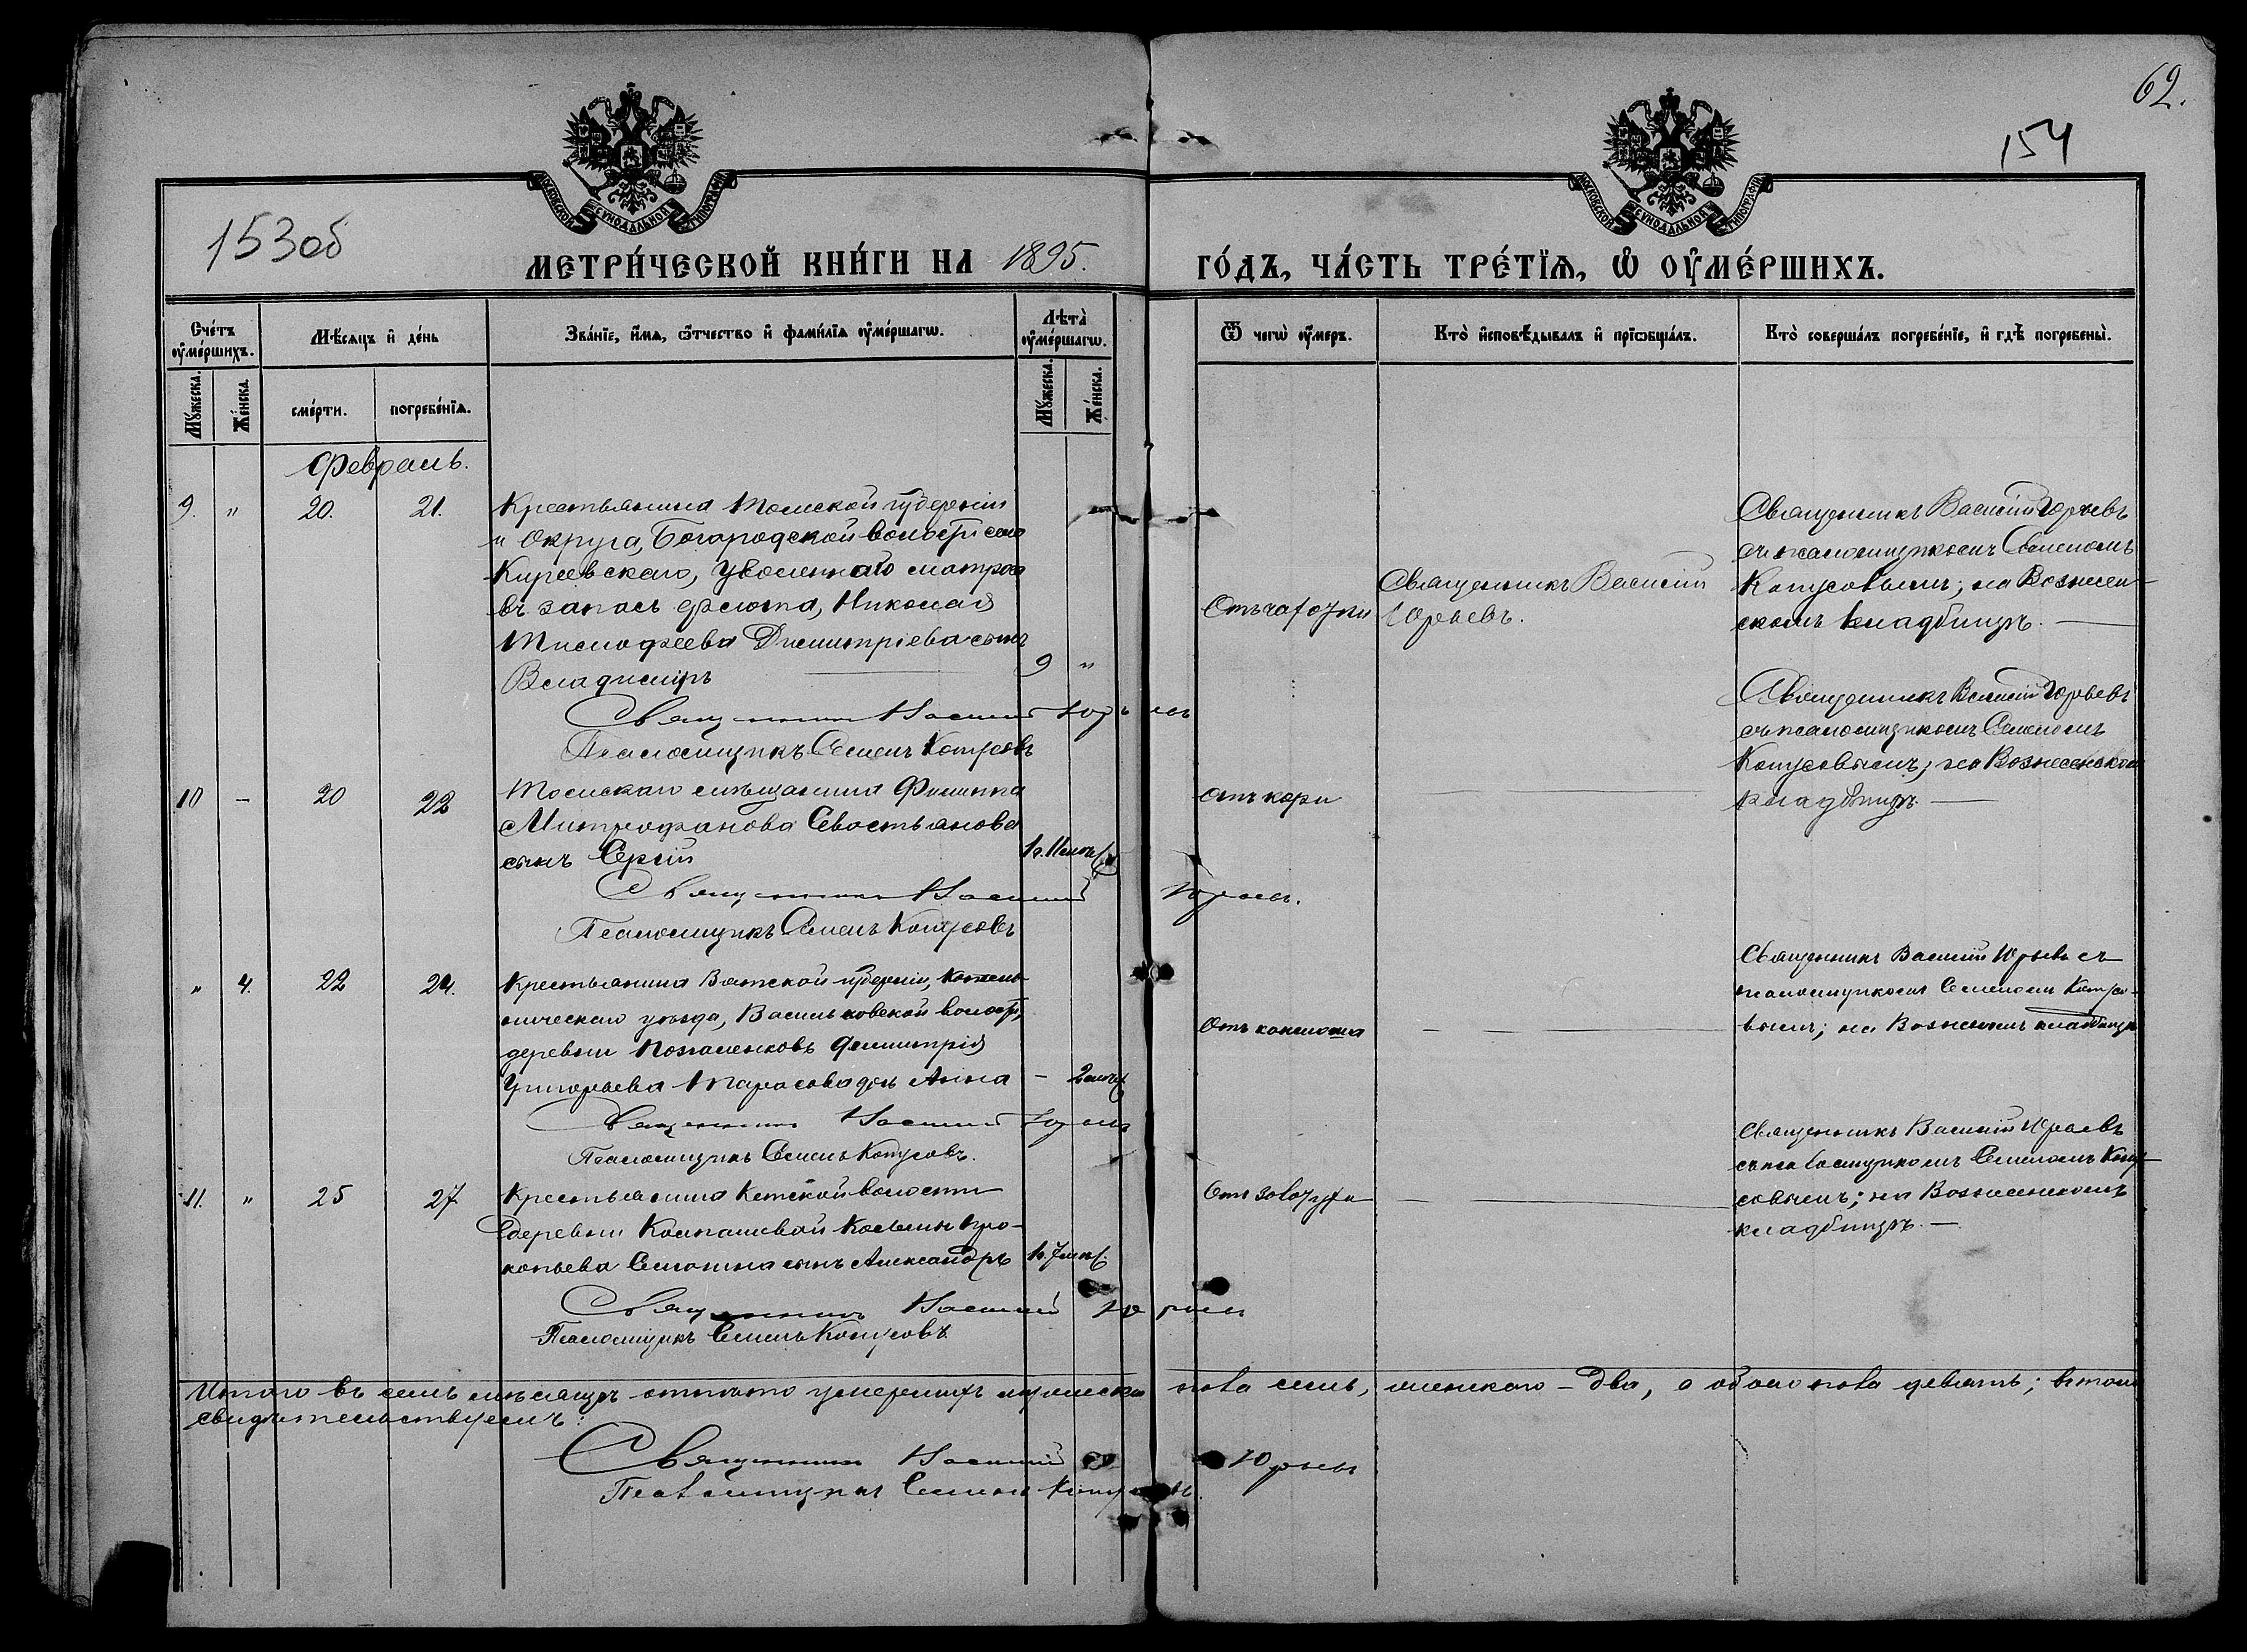 62.
154
153об
МОСКОВСКОЙ СѴНОДАЛЬНОЙ ТИПОГРАФІИ
МОСКОВСКОЙ СѴНОДАЛЬНОЙ ТИПОГРАФІИ
МЕТРИ́ЧЕСКОЙ КНИ́ГИ НА 1895.
ГО́ДЪ, ЧА́СТЬ ТРЕ́ТІѦ, Ѡ҆ ОУ҆МЕ́РШИХЪ.
Сче́тъ оу҆ме́ршихъ.
Мѣ́сяцъ и҆ де́нь
Зва́нїе, и҆́мѧ, ѻ҆́тчество и҆ фами́лїѧ оу҆ме́ршагѡ.
Лѣта̀ оу҆ме́ршагѡ.
Ѿ чегѡ̀ оу҆́меръ.
Кто̀ и҆сповѣ́дывалъ и҆ прїѡбща́лъ.
Кто̀ соверша́лъ погребе́нїе, и҆ гдѣ̀ погребены̀.
Мꙋ́жеска.
Же́нска.
сме́рти.
погребе́нїѧ.
Мꙋ́жеска.
Же́нска.
Февраль.
9. " 20. 21. Крестьянина Томской губерніи
и Округа, Богородской волости села
Киреевскаго, уволеннаго матроса
въ запасъ флота, Николая
Тимофеева Димитріева сынъ
Владиміръ 9 "
Священникъ Василій Юрьевъ
Псаломщикъ Семенъ Копусовъ
Отъ чахотки
Священникъ Василій
Юрьевъ.
Священникъ Василій Юрьевъ
съ псаломщикомъ Семеномъ
Копусовымъ; на Вознесен-
скомъ кладбищѣ.
10 — 20 22 Томскаго мѣщанина Филиппа
Митрофанова Севостьянова
сынъ Сергій
Священникъ Василій Юрьевъ.
Псаломщикъ Семенъ Копусовъ
отъ кори
Священникъ Василій Юрьевъ
съ псаломщикомъ Семеномъ
Копусовымъ; на Вознесенском
кладбищѣ. —
" 4. 22 24. Крестьянина Вятской губерніи, Котель-
ническаго уѣзда, Васильковской волости,
деревни Димитрія
Григорьева Тарасова дочь Анна —
Священникъ Василій Юрьевъ
Псаломщикъ Семенъ Копусовъ.
Отъ
Священникъ Василій Юрьевъ съ
псаломщикомъ Семеномъ Копусо-
вымъ; на кладбищѣ
11. " 25 27 Крестьянина Кетской волости
деревни Колпашевой Косьмы Про-
копьева сынъ Александръ
Священникъ Василій Юрьевъ
Псаломщикъ Семенъ Копусовъ
Отъ золотухи
Священникъ Василій Юрьевъ
съ псаломщикомъ Семеномъ Копу-
совымъ; на Вознесенскомъ
кладбищѣ. —
Итого въ семъ мѣсяцѣ умершихъ мужеска пола семь, женскаго — два, а обоего пола девять; въ томъ
свидѣтельствуемъ:
Священникъ Василій Юрьевъ
Псаломщикъ Семенъ Копусовъ.